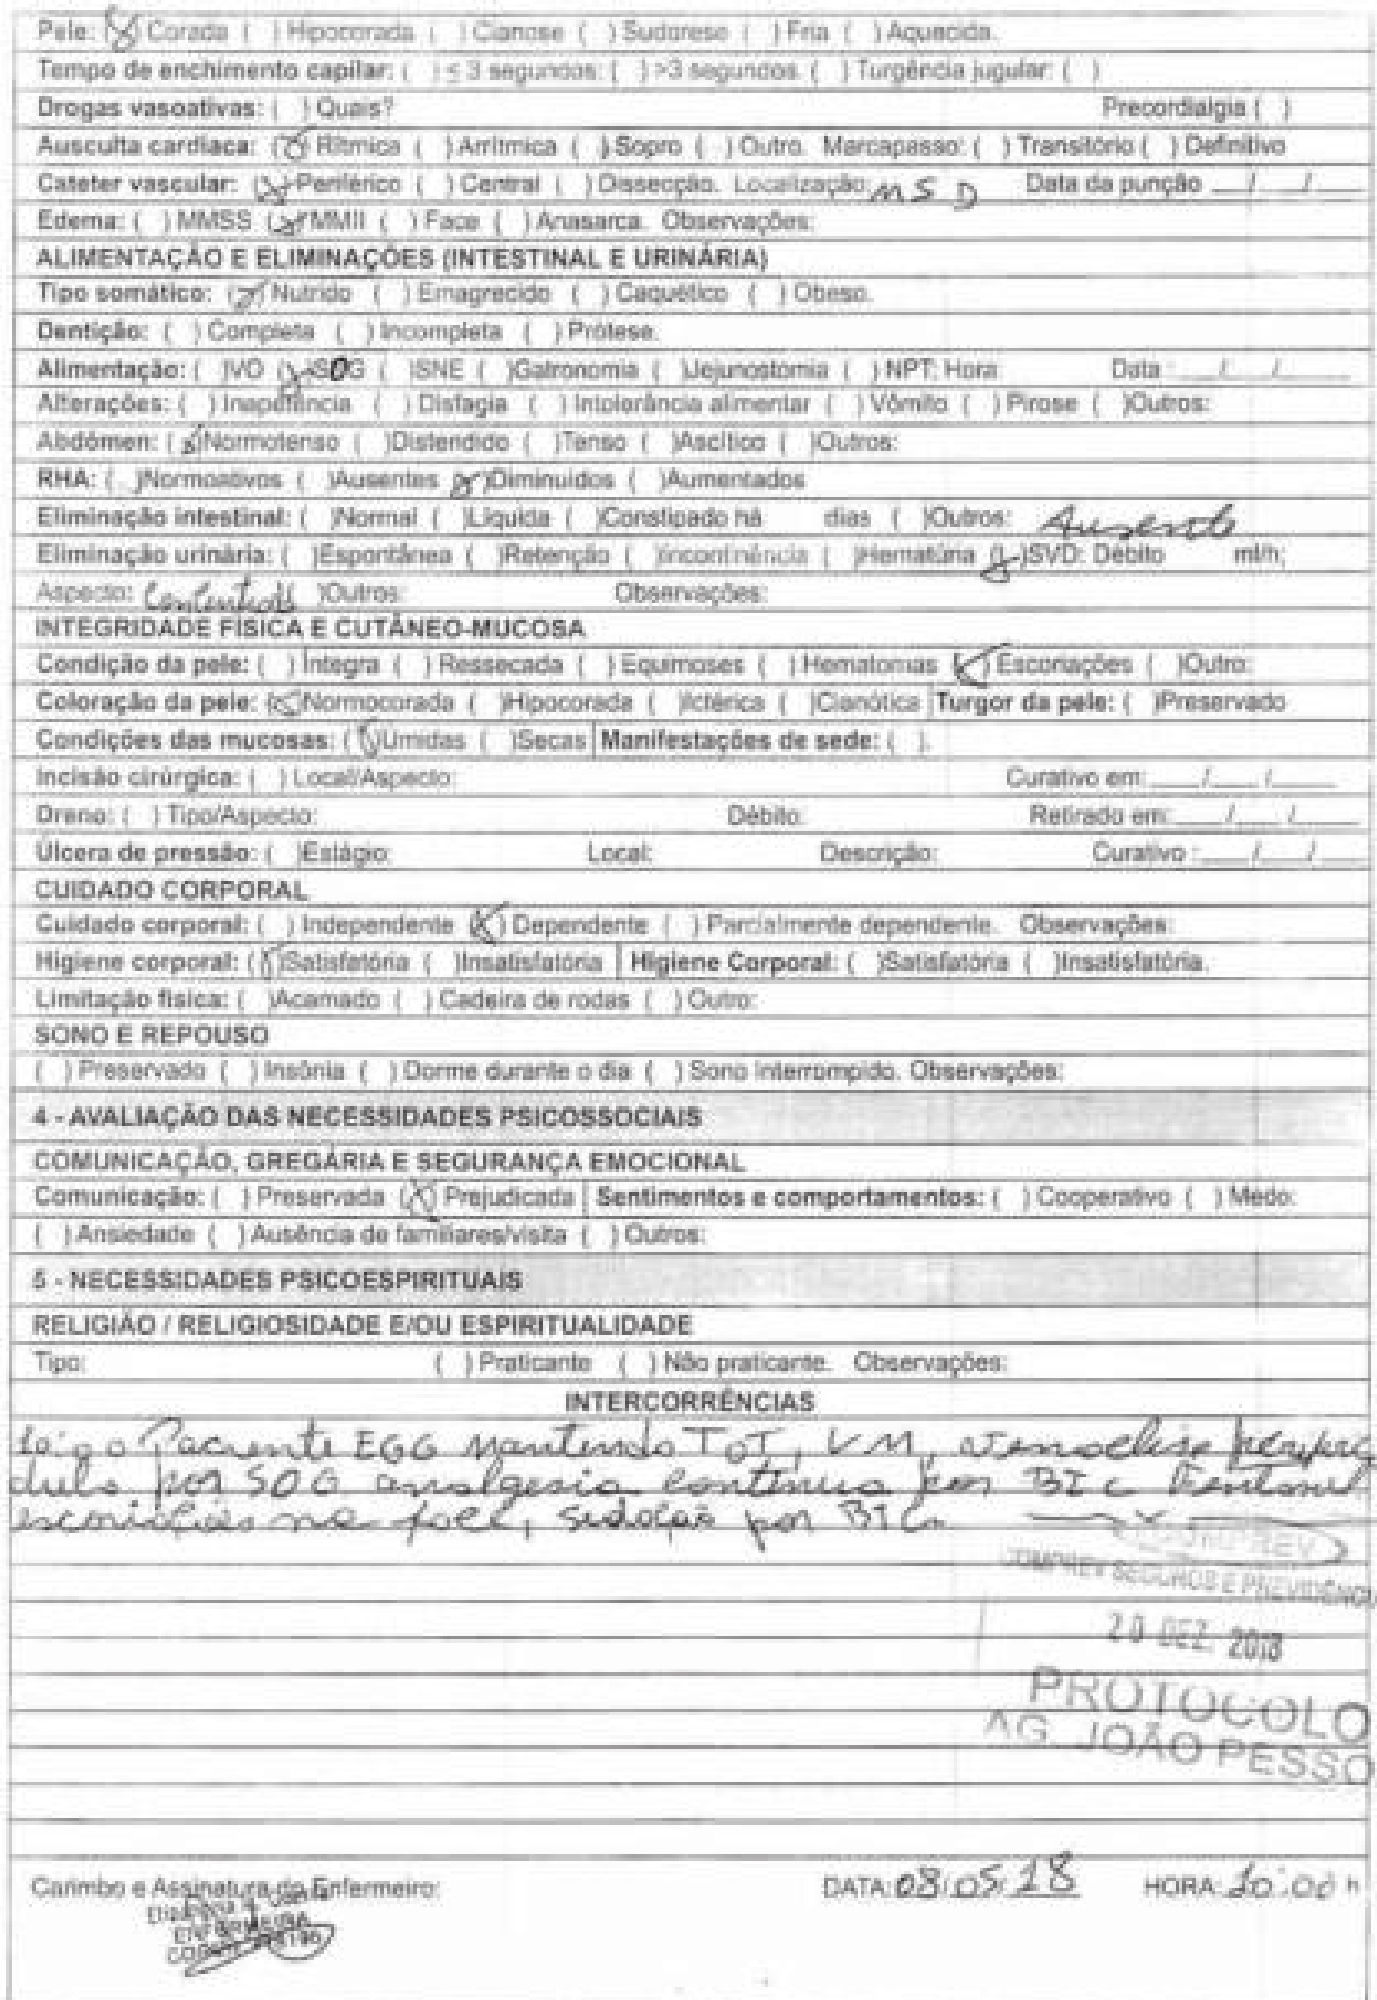 Pele: (X) Corada ( ) Hipocorada ( ) Cianose ( ) Sudorese ( ) Fria ( ) Aquecida.
Tempo de enchimento capilar: ( ) ≤ 3 segundos: ( ) >3 segundos. ( ) Turgência jugular: ( )
Drogas vasoativas: ( ) Quais? Precordialgia ( )
Ausculta cardíaca: (X) Rítmica ( ) Arrítmica ( ) Sopro ( ) Outro. Marcapasso: ( ) Transitório ( ) Definitivo
Cateter vascular: (X) Periférico ( ) Central ( ) Dissecção. Localização: MSD Data da punção ___/___/___
Edema: ( ) MMSS (X) MMII ( ) Face ( ) Anasarca. Observações:
ALIMENTAÇÃO E ELIMINAÇÕES (INTESTINAL E URINÁRIA)
Tipo somático: (X) Nutrido ( ) Emagrecido ( ) Caquético ( ) Obeso.
Dentição: ( ) Completa ( ) Incompleta ( ) Prótese.
Alimentação: ( )VO (X)SOG ( )SNE ( )Gatronomia ( )Jejunostomia ( ) NPT: Hora: Data: ___/___/___
Alterações: ( ) Inapetência ( ) Disfagia ( ) Intolerância alimentar ( ) Vômito ( ) Pirose ( )Outros:
Abdômen: (X)Normotenso ( )Distendido ( )Tenso ( )Ascítico ( )Outros:
RHA: ( )Normoativos ( )Ausentes (X)Diminuídos ( )Aumentados
Eliminação intestinal: ( )Normal ( )Líquida ( )Constipado há dias ( )Outros: Ausente
Eliminação urinária: ( )Espontânea ( )Retenção ( )Incontinência ( )Hematúria (X)SVD: Débito ml/h;
Aspecto: )Outros: Observações:
INTEGRIDADE FÍSICA E CUTÂNEO-MUCOSA
Condição da pele: ( ) Íntegra ( ) Ressecada ( ) Equimoses ( ) Hematomas (X) Escoriações ( )Outro:
Coloração da pele: (X)Normocorada ( )Hipocorada ( )Ictérica ( )Cianótica Turgor da pele: ( )Preservado
Condições das mucosas: (X)Úmidas ( )Secas Manifestações de sede: ( ).
Incisão cirúrgica: ( ) Local/Aspecto: Curativo em: ___/___/___
Dreno: ( ) Tipo/Aspecto: Débito: Retirado em: ___/___/___
Úlcera de pressão: ( )Estágio: Local: Descrição: Curativo : ___/___/___
CUIDADO CORPORAL
Cuidado corporal: ( ) Independente (X) Dependente ( ) Parcialmente dependente. Observações:
Higiene corporal: (X)Satisfatória ( )Insatisfatória Higiene Corporal: ( )Satisfatória ( )Insatisfatória.
Limitação física: ( )Acamado ( ) Cadeira de rodas ( ) Outro:
SONO E REPOUSO
( ) Preservado ( ) Insônia ( ) Dorme durante o dia ( ) Sono interrompido. Observações:
4 - AVALIAÇÃO DAS NECESSIDADES PSICOSSOCIAIS
COMUNICAÇÃO, GREGÁRIA E SEGURANÇA EMOCIONAL
Comunicação: ( ) Preservada (X) Prejudicada Sentimentos e comportamentos: ( ) Cooperativo ( ) Medo:
( ) Ansiedade ( ) Ausência de familiares/visita ( ) Outros:
5 - NECESSIDADES PSICOESPIRITUAIS
RELIGIÃO / RELIGIOSIDADE E/OU ESPIRITUALIDADE
Tipo: ( ) Praticante ( ) Não praticante. Observações:
INTERCORRÊNCIAS
10:00 Paciente EGG mantendo TOT, VM,
por SOG analgesia contínua por BIC
escoriações na face, sedação por BIC.
COMPREV
COMPREV SEGUROS E PREVIDÊNCI
20 DEZ. 2018
PROTOCOLO
AG. JOÃO PESSO
Carimbo e Assinatura do Enfermeiro: DATA: 08/05/18 HORA: 10:00 h
ENFERMEIRA